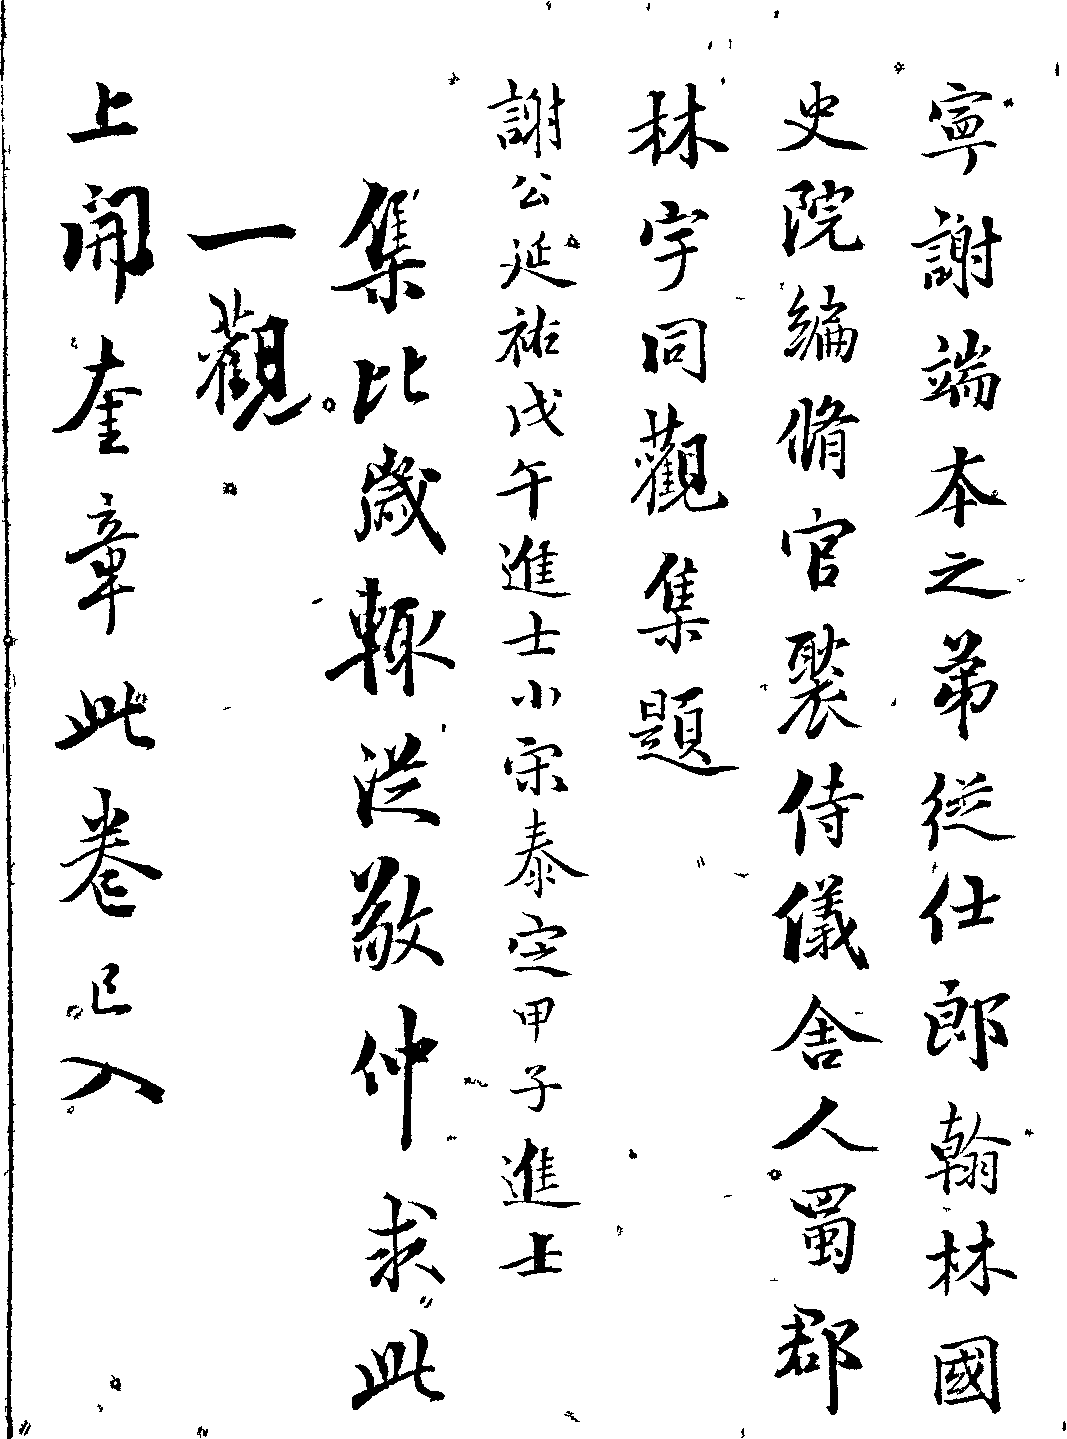 寧謝端本之弟從仕郎翰林國
史院編脩官裴侍儀舍人蜀郡
林宇同觀集題
謝公延祐戊午進士小宋泰定甲子進士
集比歲輒從敬仲求此
一觀
上開奎章此卷已入